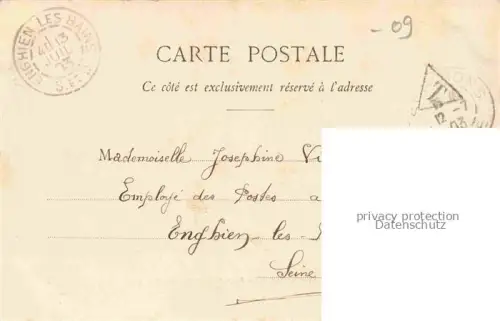 -09
ENGHIEN LES BAINS
13
JUIL
03
CARTE POSTALE
Ce côté est exclusivement réservé à l'adresse
T
12
03
Mademoiselle Josephine Vi
Employé des Postes a
Enghien-les-
Seine
privacy protection
Datenschutz